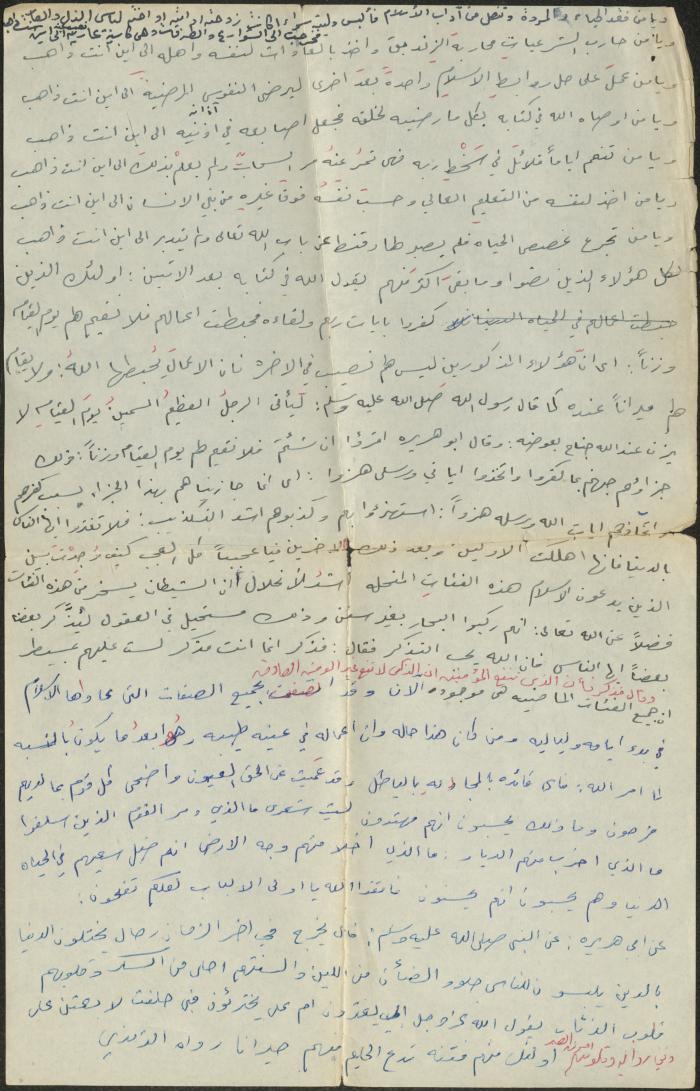 ويا من فقد الحياء والمروءة وتنصل من آداب الاسلام فألبس وليته
ويا من حارب الشرعيات محاربة الزنديق واخذ بالعادات لنفسه واهله الى اين انت ذاهب
ويا من عمل على حل روابط الاسلام واحدة بعد اخرى ليرضى النفوس المرضية الى اين انت ذاهب
ويا من اوصاه الله في كتابه بكل ما رضيه لخلقه فجعل اصابعه في اذنيه الى اين انت ذاهب
ويا من تنعم اياماً قلائل في سخط ربه فهى تمر عنه مر السحاب ولم يعلم بذلك الى اين انت ذاهب
ويا من اخذ لنفسه من التعليم العالي وحسب نفسه فوق غيره من بني الانسان الى اين انت ذاهب
ويا من تجرع غصص الحياة فلم يصبر لها وقنط عن باب الله تعالى ولم يتدبر الى اين انت ذاهب
لكل هؤلاء الذين مضوا وما بقى اكثر منهم يقول الله في كتابه بعد الاثنين : اولئك الذين
كفروا بايات ربهم ولقاءه فحبطت اعمالهم فلا نقيم لهم يوم القيامة
وزناً : اى ان هؤلاء المذكورين ليس لهم نصيب في الاخرة فان الاعمال يحبطها الله ولا يقام
لهم ميزاناً عنده كما قال رسول الله صلى الله عليه وسلم : ليأتى الرجل العظيم السمين يوم القيامة لا
يزن عند الله جناح بعوضة : وقال ابو هريره اقرؤا ان شئتم فلا نقيم لهم يوم القيامة وزناً : ذلك
جزاؤهم جهنم بما كفروا واتخذوا اياتي ورسلى هزوا : اى انما جازيناهم بهذا الجزاء بسبب كفرهم
واتخاذهم ايات الله ورسله هزواً : استهزؤا بهم وكذبوهم اشد التكذيب : فلا تغتروا ايها الناس
بالدنيا فانها اهلكت الاولين وبعد ذلك الاخرين فيا عجباً كل العجب كيف
الذين يدعون الاسلام هذه الفئات المنحله اشد الانحلال ان الشيطان يسخر من هذه الفئات
فضلاً عن الله تعالى : انهم ركبوا البحار بغير سفن وذلك مستحيل في العقول ليذكر بعضنا
بعضاً ايها الناس فان الله يحب التذكر فقال : فذكر انما انت مذكر لست عليهم بمسيطر
وقال فذكر فإن الذكرى تنفع المؤمنين ان الذكرى لا تنفع غير المؤمنين الصادقين
ان جميع الفئات الماضيه هى موجوده الان وقد اتصفت بجميع الصفات التى عاداها الاسلام
في بدء ايامه ولياليه ومن كان هذا حاله وان اعماله في عينه طيبه وهو ابعد ما يكون بالنسبه
لما امر الله : فاى فائده بالمجادله بالباطل وقد عميت عن الحق العيون واضحى كل قوم بما لديهم
فرحون وما ذلك يحسبون انهم مهتدون ليت شعرى ما الذي دمر القوم الذين سلفوا
ما الذي اخرب منهم الديار : ما الذي اخلا منهم وجه الارض انهم ضل سعيهم في الحياه
الدنيا وهم يحسبون انهم يحسنون فاتقوا الله يا اولى الالباب لعلكم تفلحون :
عن ابى هريره : عن النبى صلى الله عليه وسلم : قال يخرج في اخر الزمان رجال يختلون الدنيا
بالدين يلبسون للناس جلود الضأن من اللين والسنتهم احلى من السكر وقلوبهم
قلوب الذئاب يقول الله عز وجل ابي يغترون ام على يجترئون فبى حلفت لابعثن على
اولئك منهم فتنه تدع الحليم منهم حيرانا رواه الترمذي